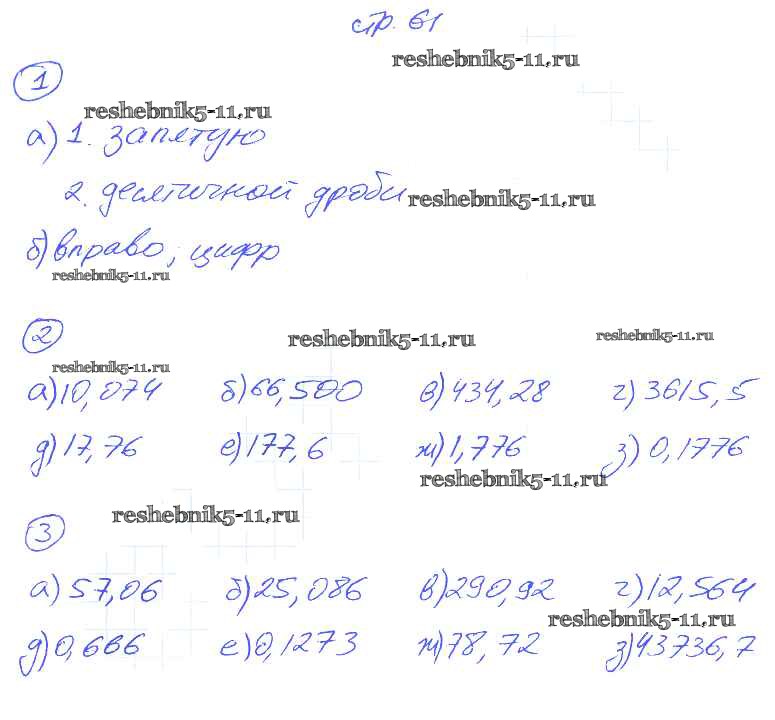 стр. 61
reshebnik5-11.ru
1
reshebnik5-11.ru
а) 1. запятую
2. десятичной дроби reshebnik5-11.ru
б) вправо; цифр
reshebnik5-11.ru
2
reshebnik5-11.ru reshebnik5-11.ru
reshebnik5-11.ru
а) 10,074 б) 66,500 в) 434,28 г) 3615,5
д) 17,76 е) 177,6 ж) 1,776 з) 0,1776
reshebnik5-11.ru
reshebnik5-11.ru
3
а) 57,06 б) 25,086 в) 290,92 г) 12,564
reshebnik5-11.ru
д) 0,666 е) 0,1273 ж) 78,72 з) 43736,7